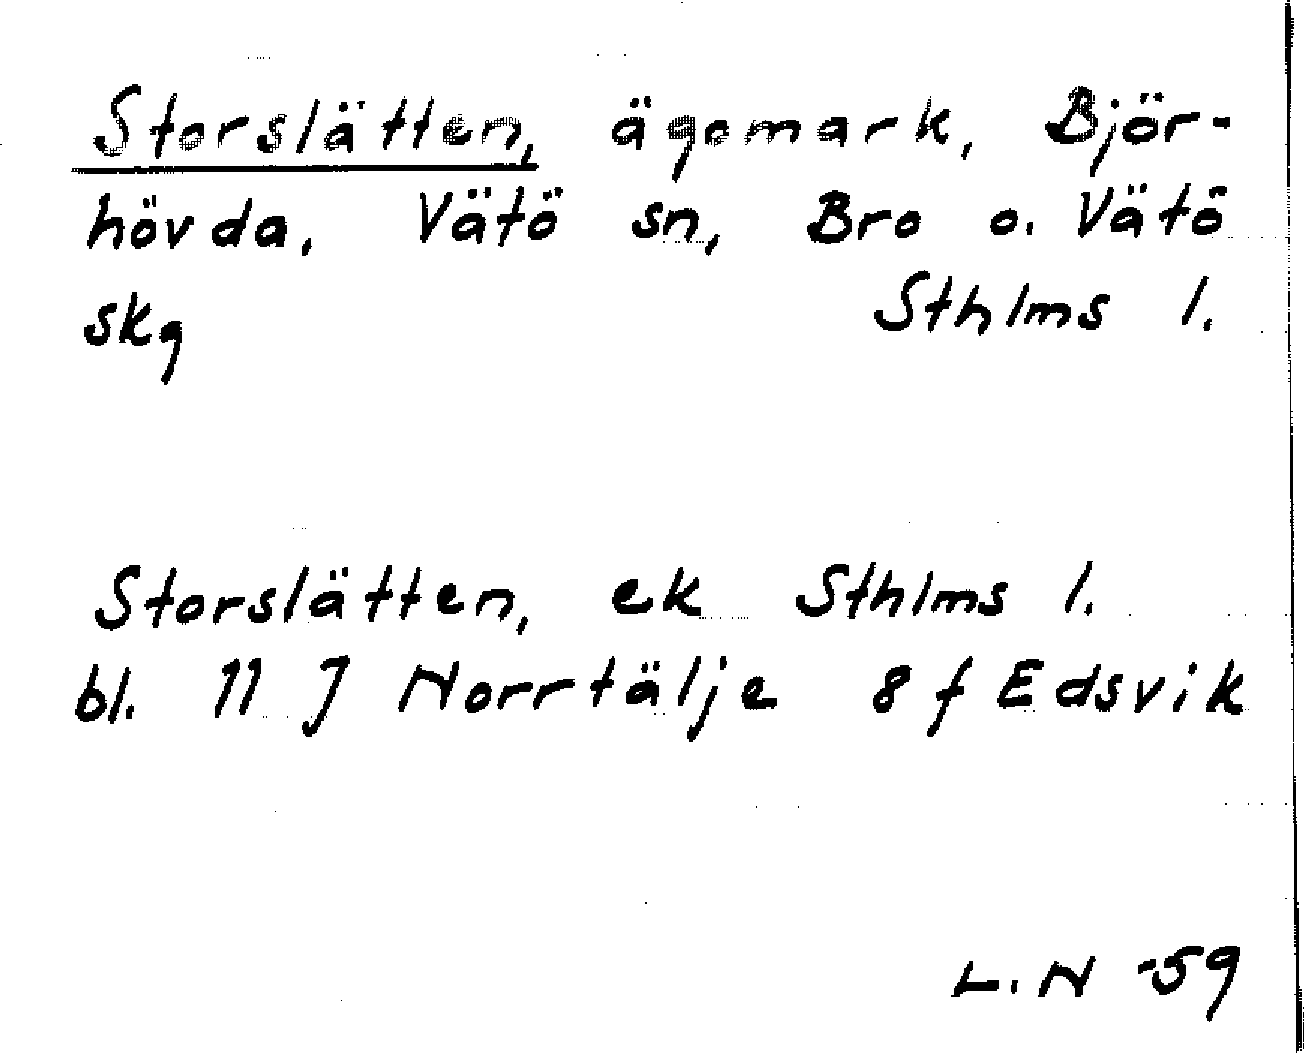 Storslätten, ägomark, Björ-
hövda, Vätö sn, Bro o. Vätö
skg Sthlms l.
Storslätten, ek Sthlms l.
bl. 11 J Norrtälje 8 f Edsvik
L. N -59